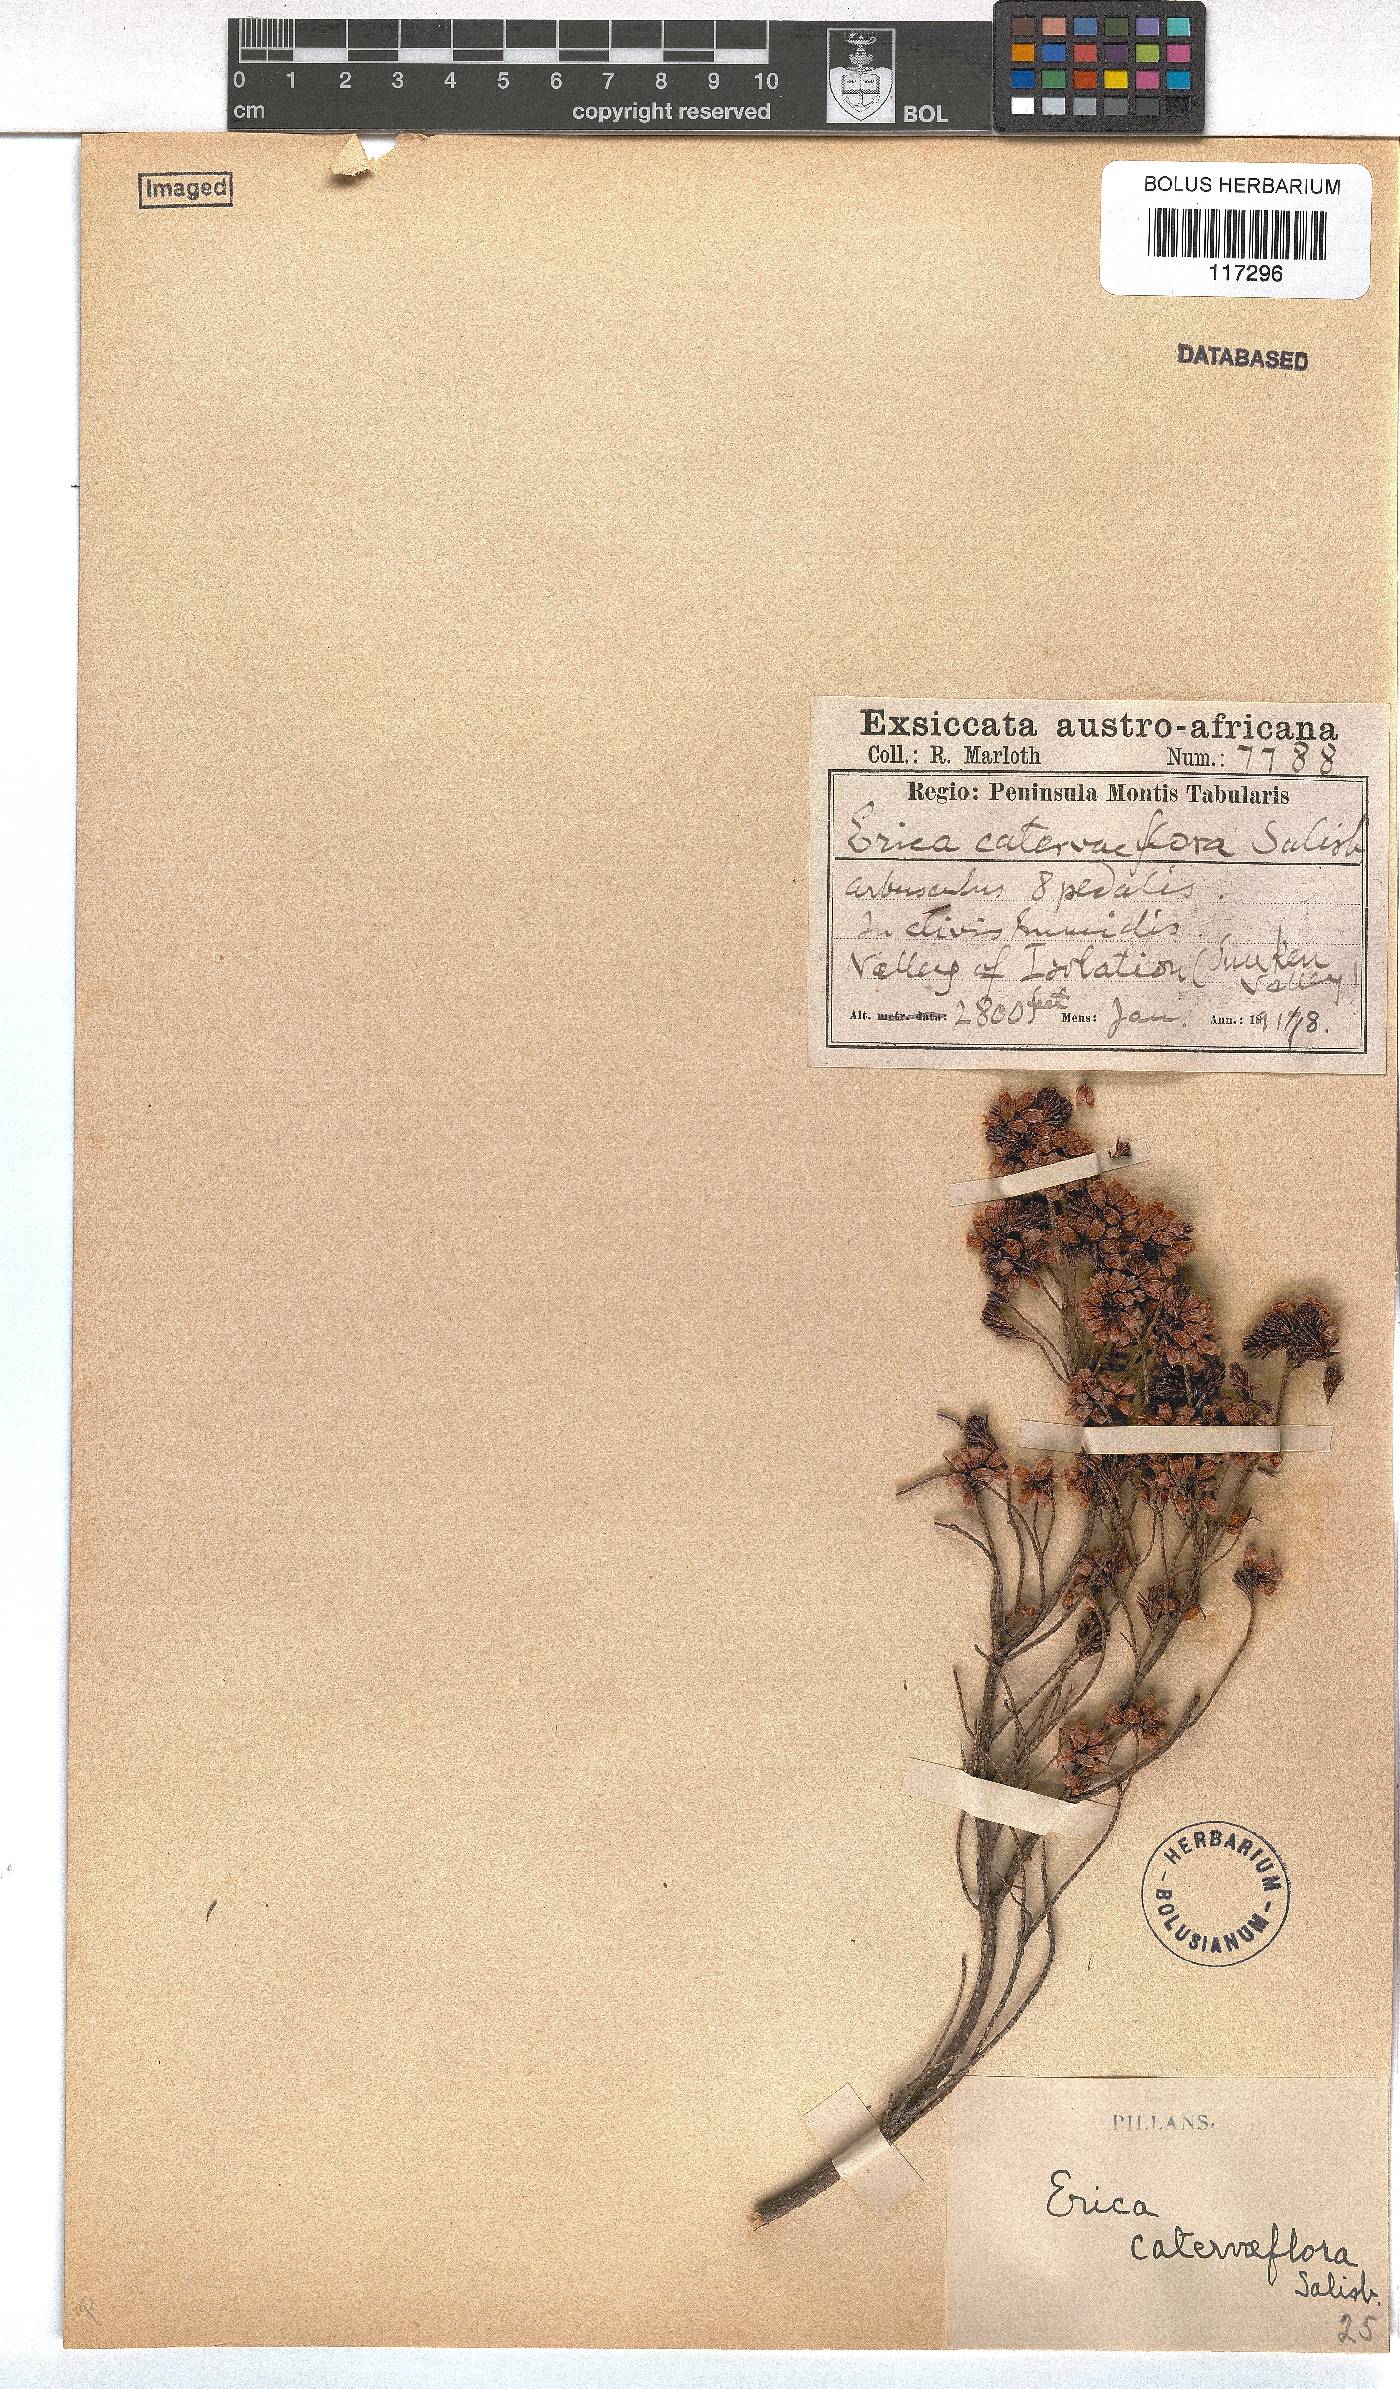 0 1 2 3 4 5 6 7 8 9 10
cm copyright reserved BOL
Imaged
BOLUS HERBARIUM
117296
DATABASED
Exsiccata austro-africana
Coll.: R. Marloth Num.: 7788
Regio: Peninsula Montis Tabularis
Erica catervaeflora Salisb
arbusculus 8 pedalis.
In clivis humidis
Valley of Isolation (Sunken
Valley)
Alt. metr. data: 2800 feet Mens: Jan. Ann.:
HERBARIUM
BOLUSIANUM
PILLANS.
Erica
catervæflora
Salisb.
25